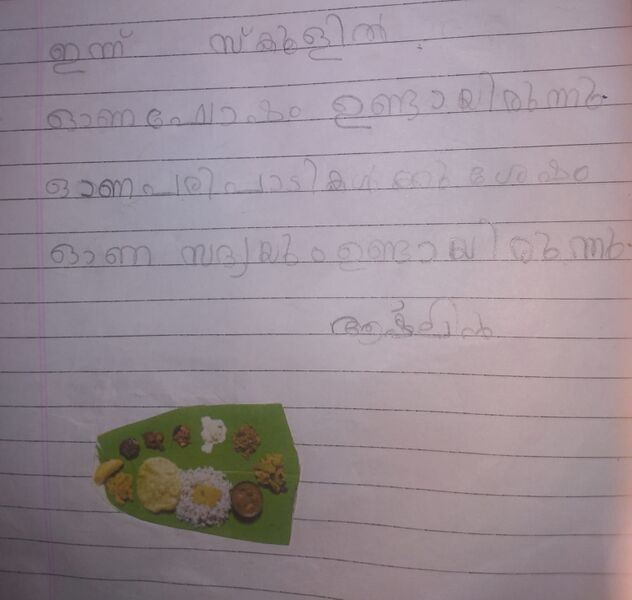 ഇന്ന് സ്കൂളിൽ
ഓണഘോഷം ഉണ്ടായിരുന്നു.
ഓണപരിപാടികൾക്ക് ശേഷം
ഓണ സദ്യയും ഉണ്ടായിരുന്നു.